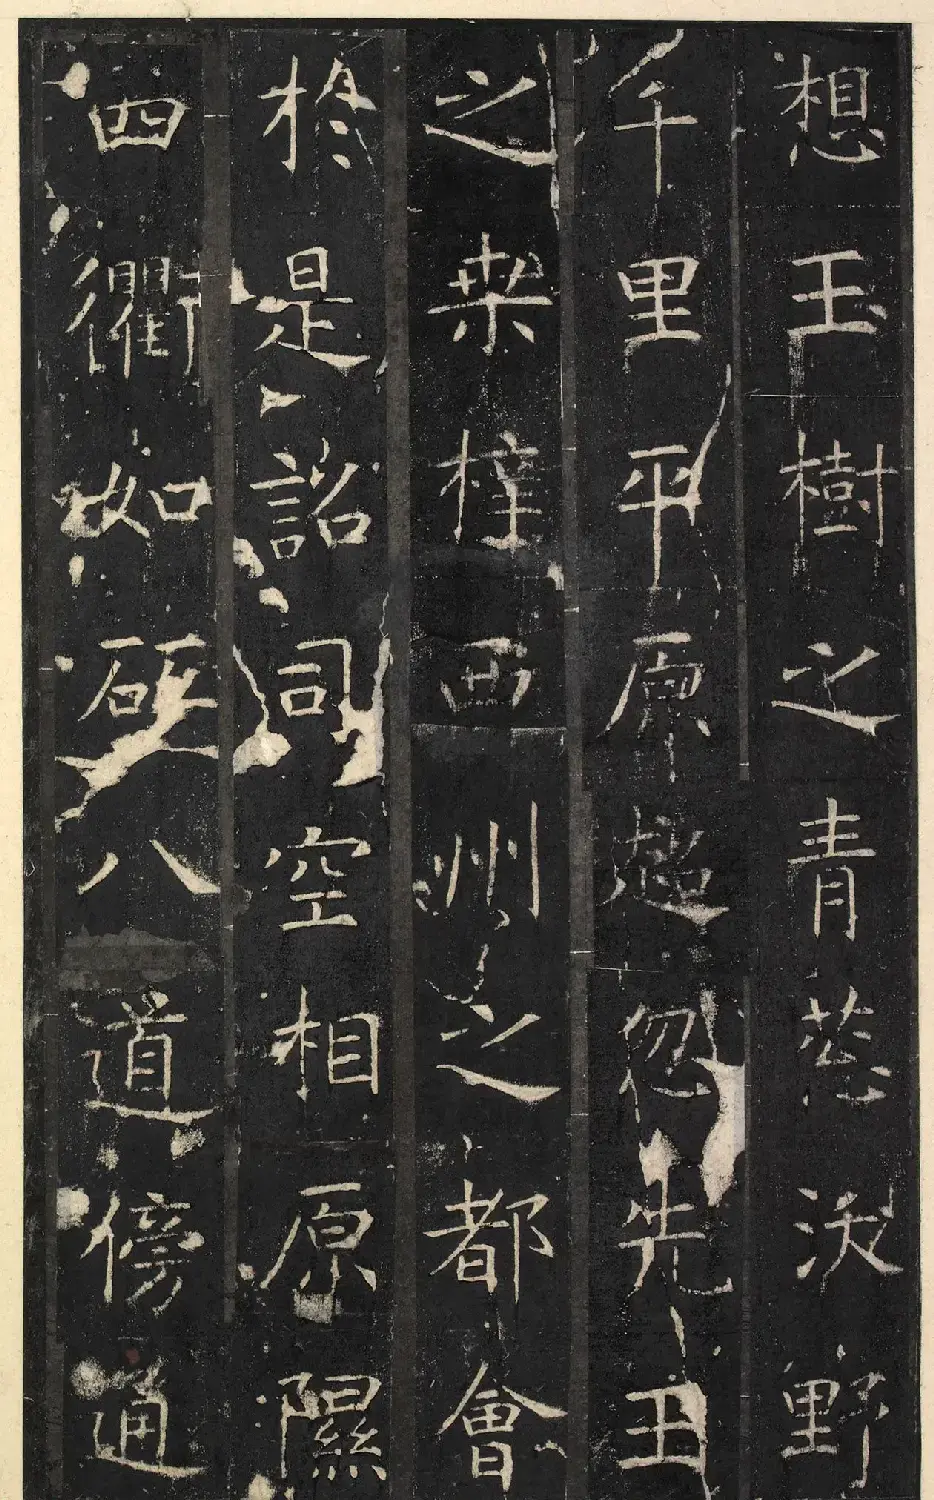 想玉樹之青葱沃野
千里平原超忽先王
之桒梓西州之都會
於是詔司空相原隰
四衢如砥八道傍通